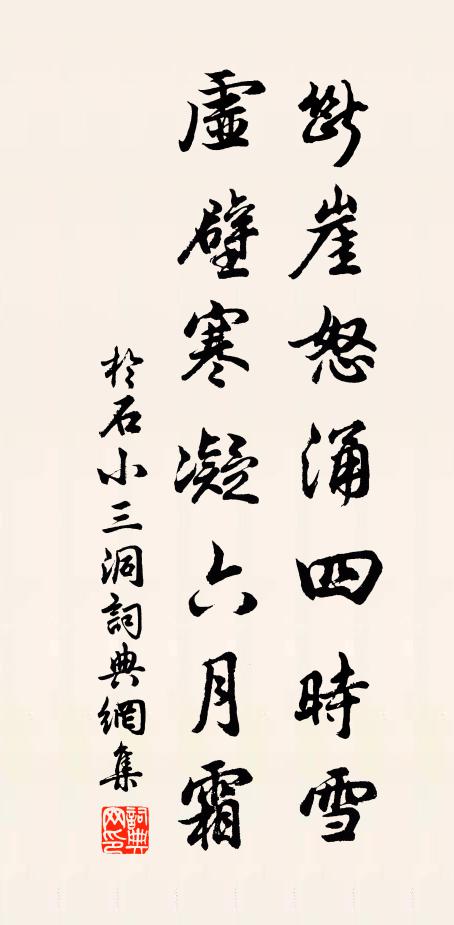 斷崖怒涌四時雪
虛壁寒凝六月霜
於石小三洞詞典網集
詞典网印